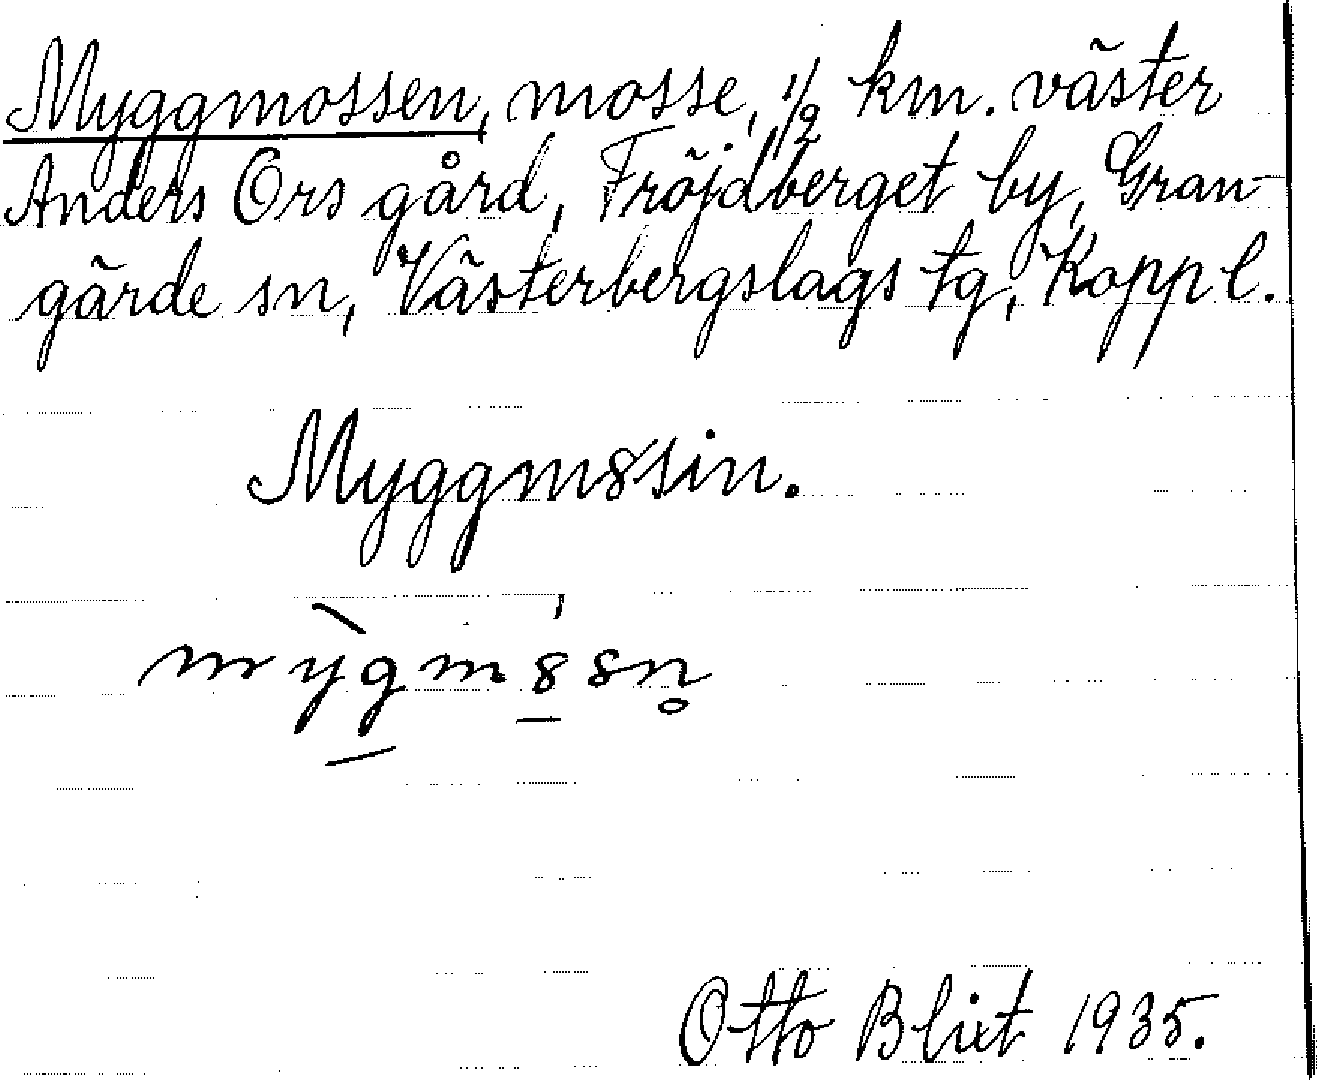 Myggmossen, mosse, 1/2 km. väster
Anders Ors gård, Fröjdberget by, Gran-
gärde sn, Västerbergslags tg, Kopp l.
Myggm8sin.
mỳgm8sn̥
Otto Blixt 1935.